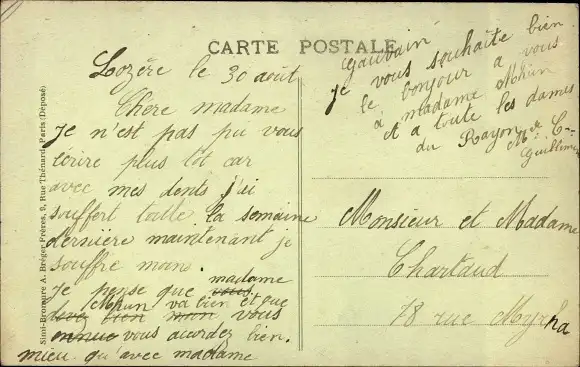 CARTE POSTALE
Lozére le 30 août
Chere madame
Je n'est pas pu vous
écrire plus tôt car
avec mes dents j'ai
souffert toute la semaine
derniére maintenant je
souffre moins.
Je pense que vous madame
Mhun va bien et que
vous
vous acordez bien.
mieu qu'avec madame
Gauvain
je vous souhaite bien
le bonjour a vous
a madame Mhun
et a toute les dames
du Rayon
Guillemin
Monsieur et Madame
Chartaud
78 rue Myrha
Simi-Bromure A. Bréger Frères, 9, Rue Thénard, Paris (Déposé)